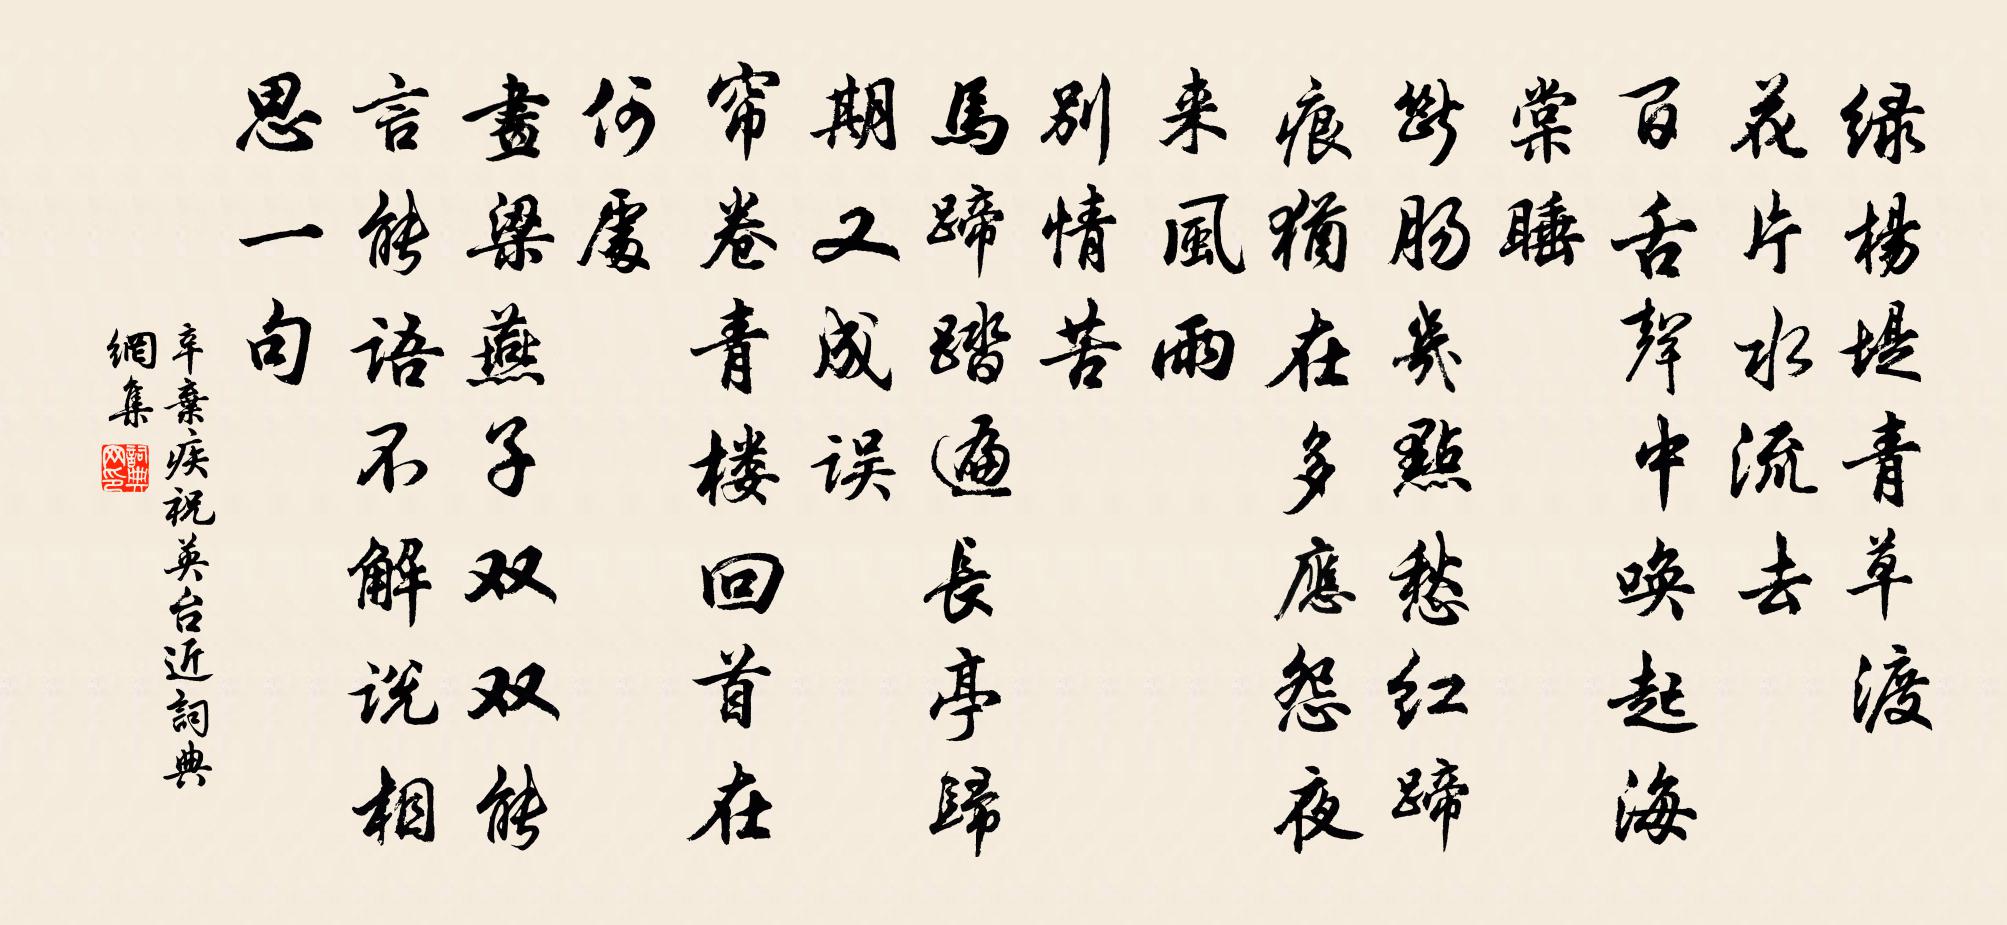 绿楊堤青草渡
花片水流去
百舌聲中唤起海
棠睡
斷肠幾點愁红蹄
痕猶在多應怨夜
来風雨
别情苦
馬蹄踏遍長亭歸
期又成误
帘卷青楼回首在
何處
畫梁燕子双双能
言能语不解说相
思一句
辛棄疾祝英台近詞典
網集
詞典
网印